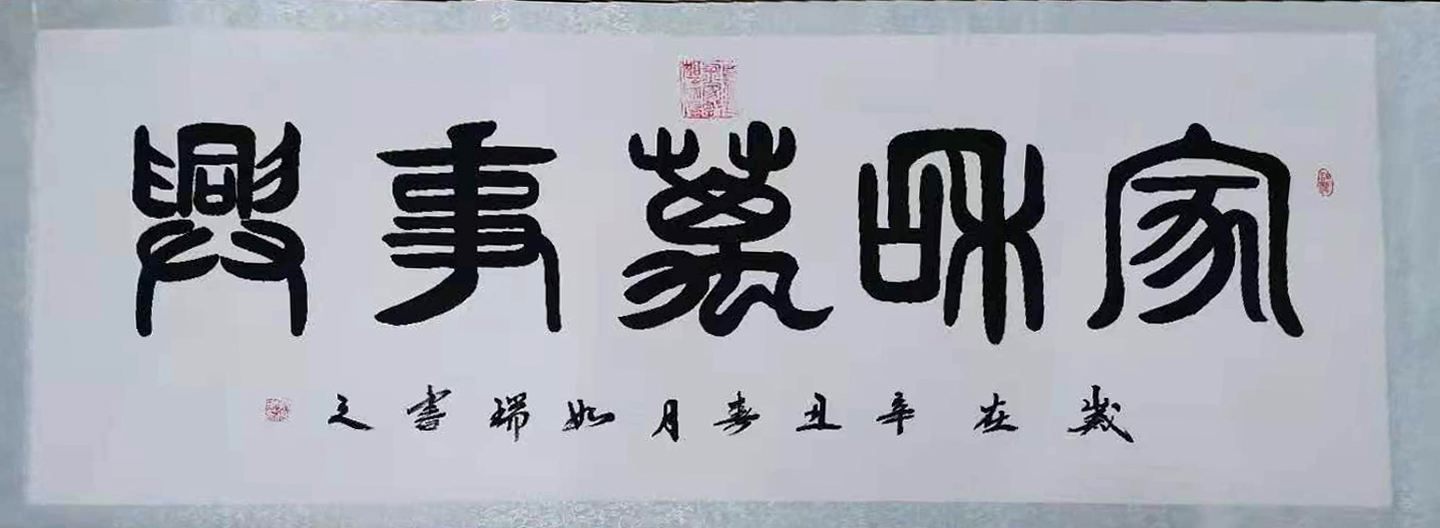 家和萬事興
歲在辛丑春月如瑞書之